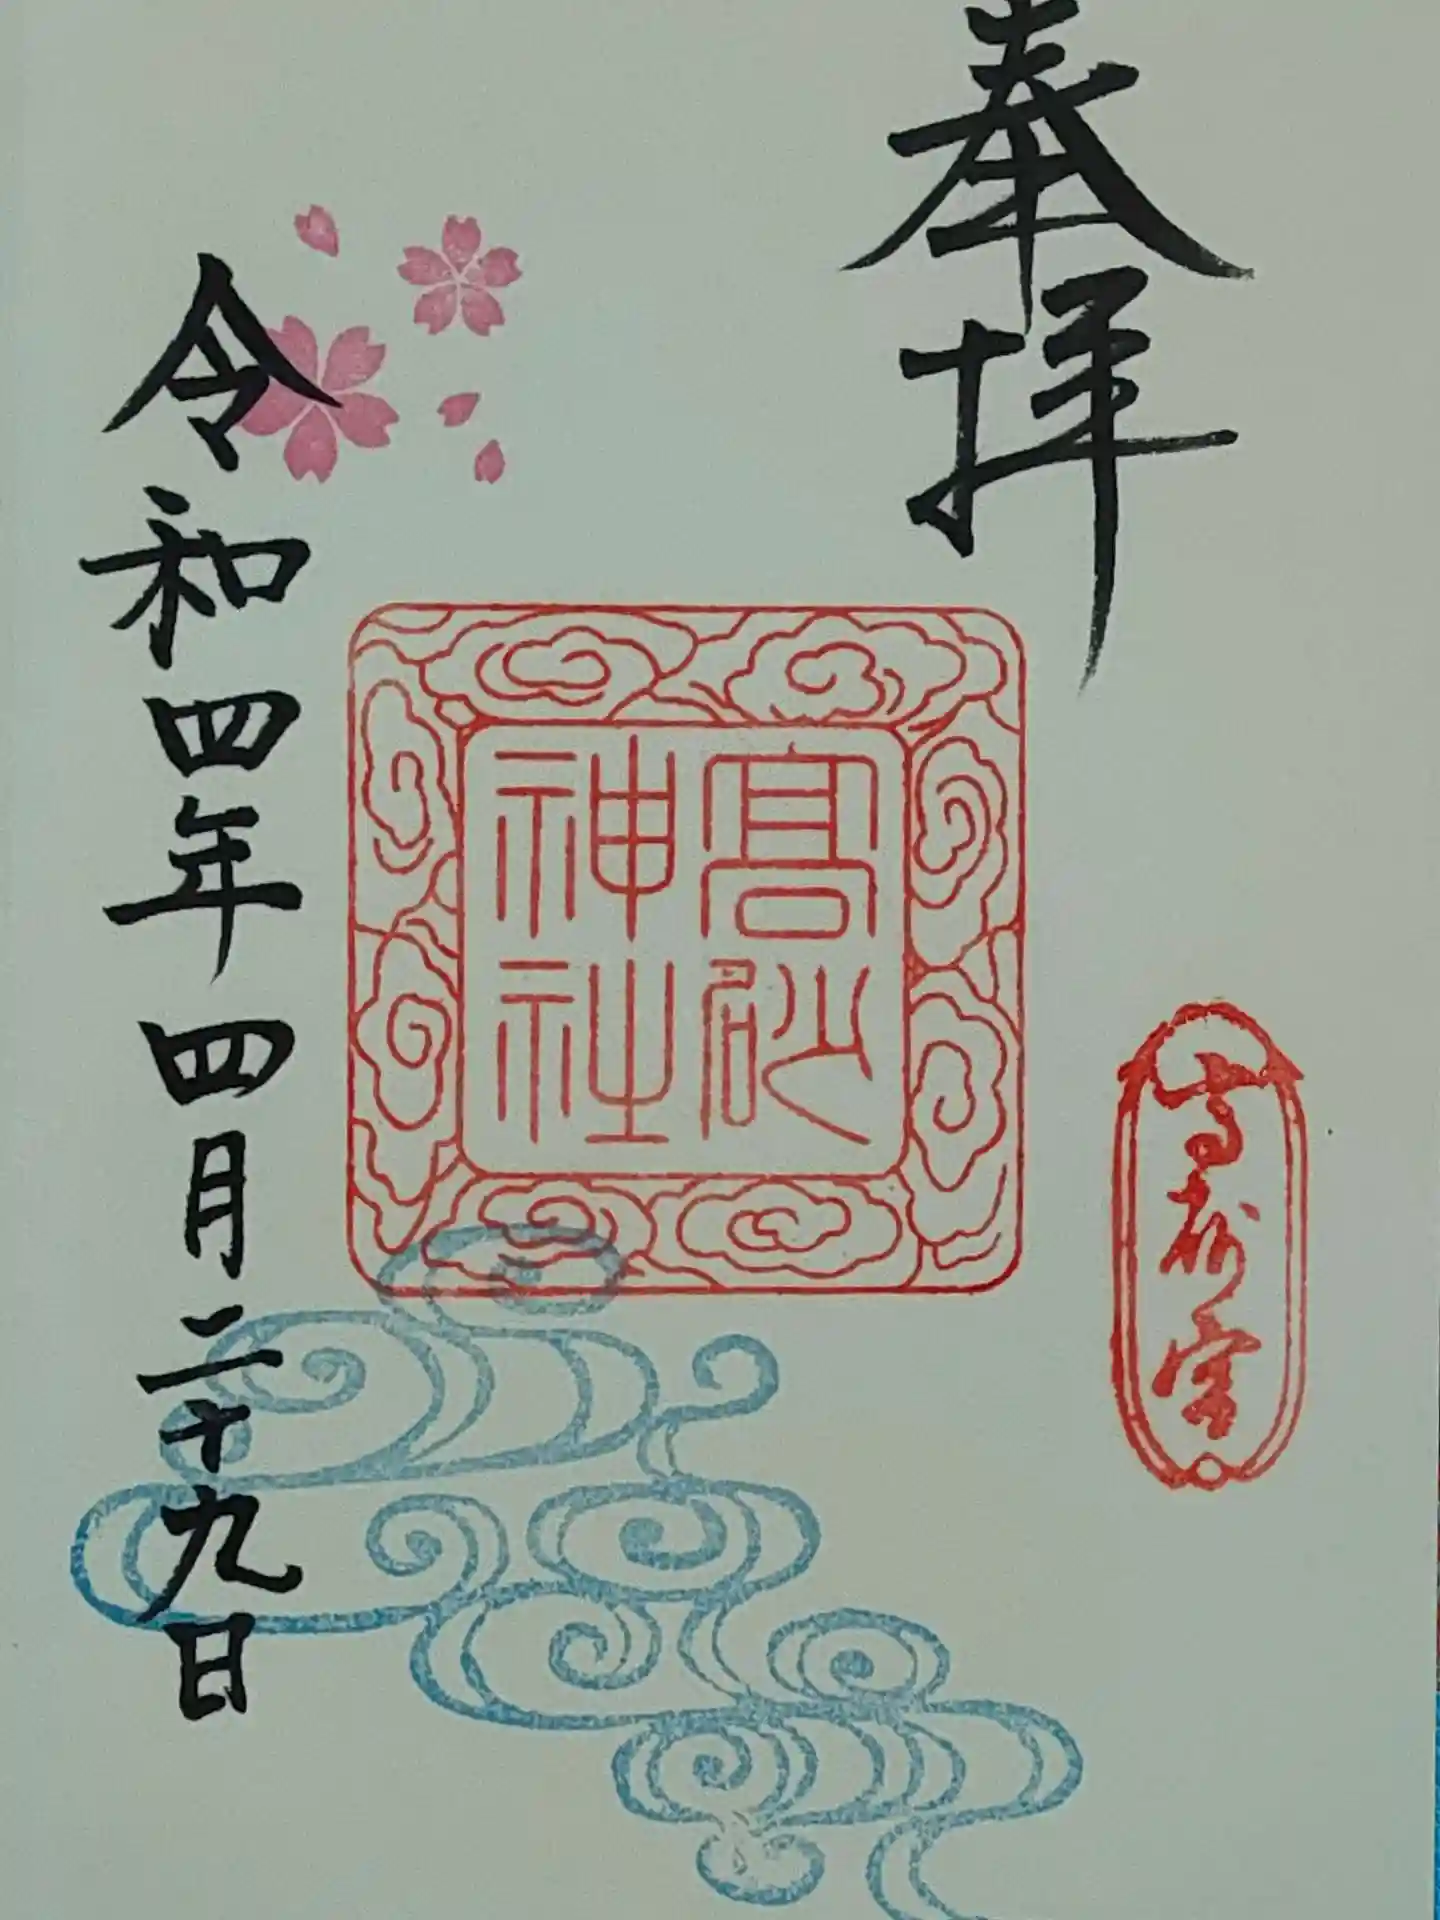 奉拝
高砂宮
髙砂
神社
令和四年四月二十九日